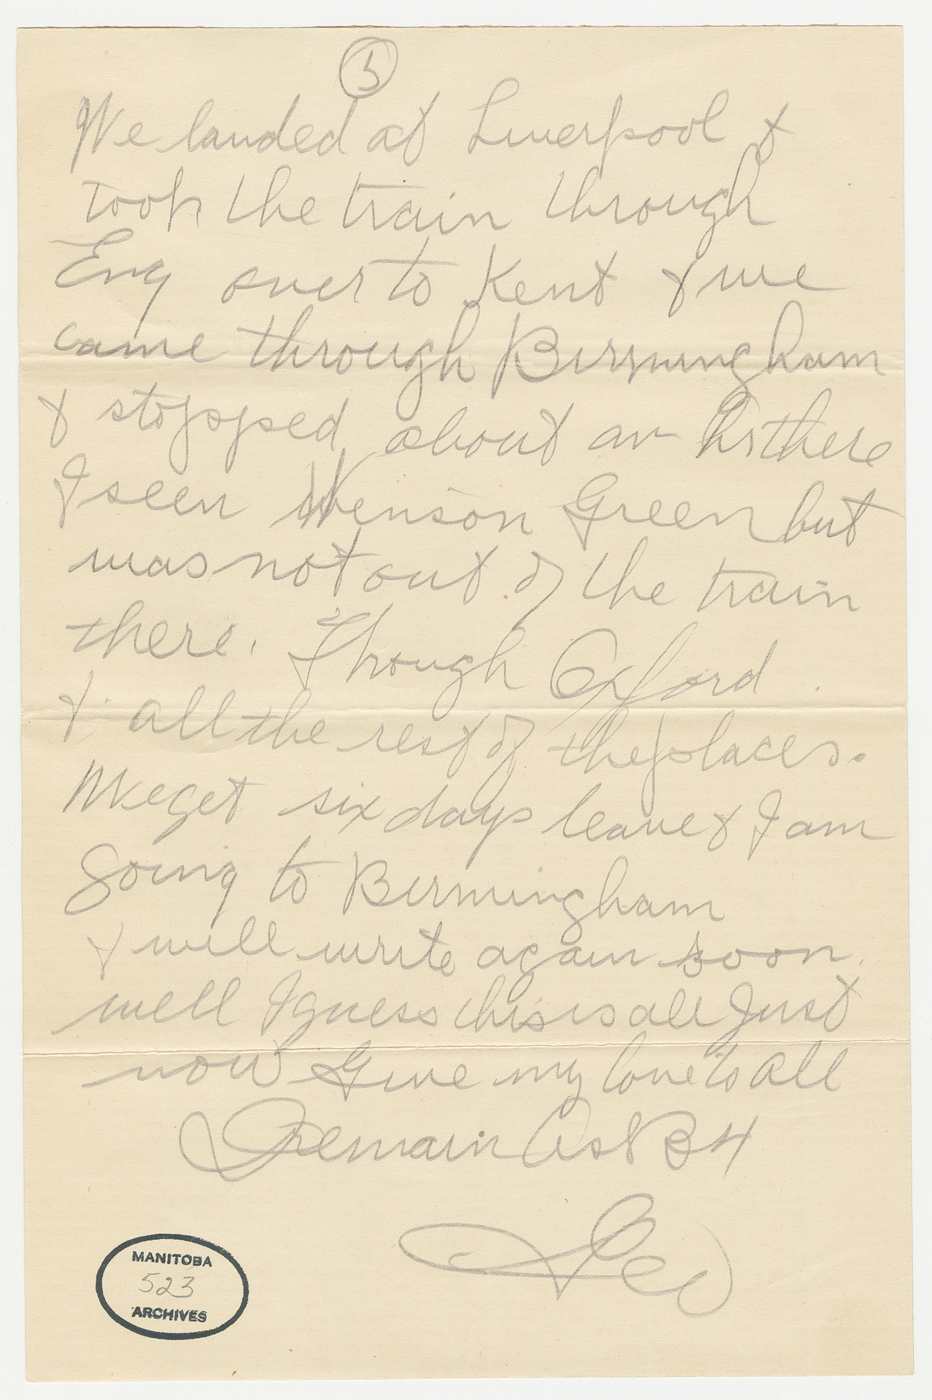 5
We landed at Liverpool &
took the train through
Eng over to Kent & we
came through Birmingham
& stopped about an hr there
I seen Wenson Green but
was not out of the train
there. Through Oxford.
& all the rest of the places.
We get six days leave & I am
going to Birmingham
I will write again soon.
well I guess this is all Just
now Give my love to all
Remain As B4
Geo
MANITOBA
523
ARCHIVES